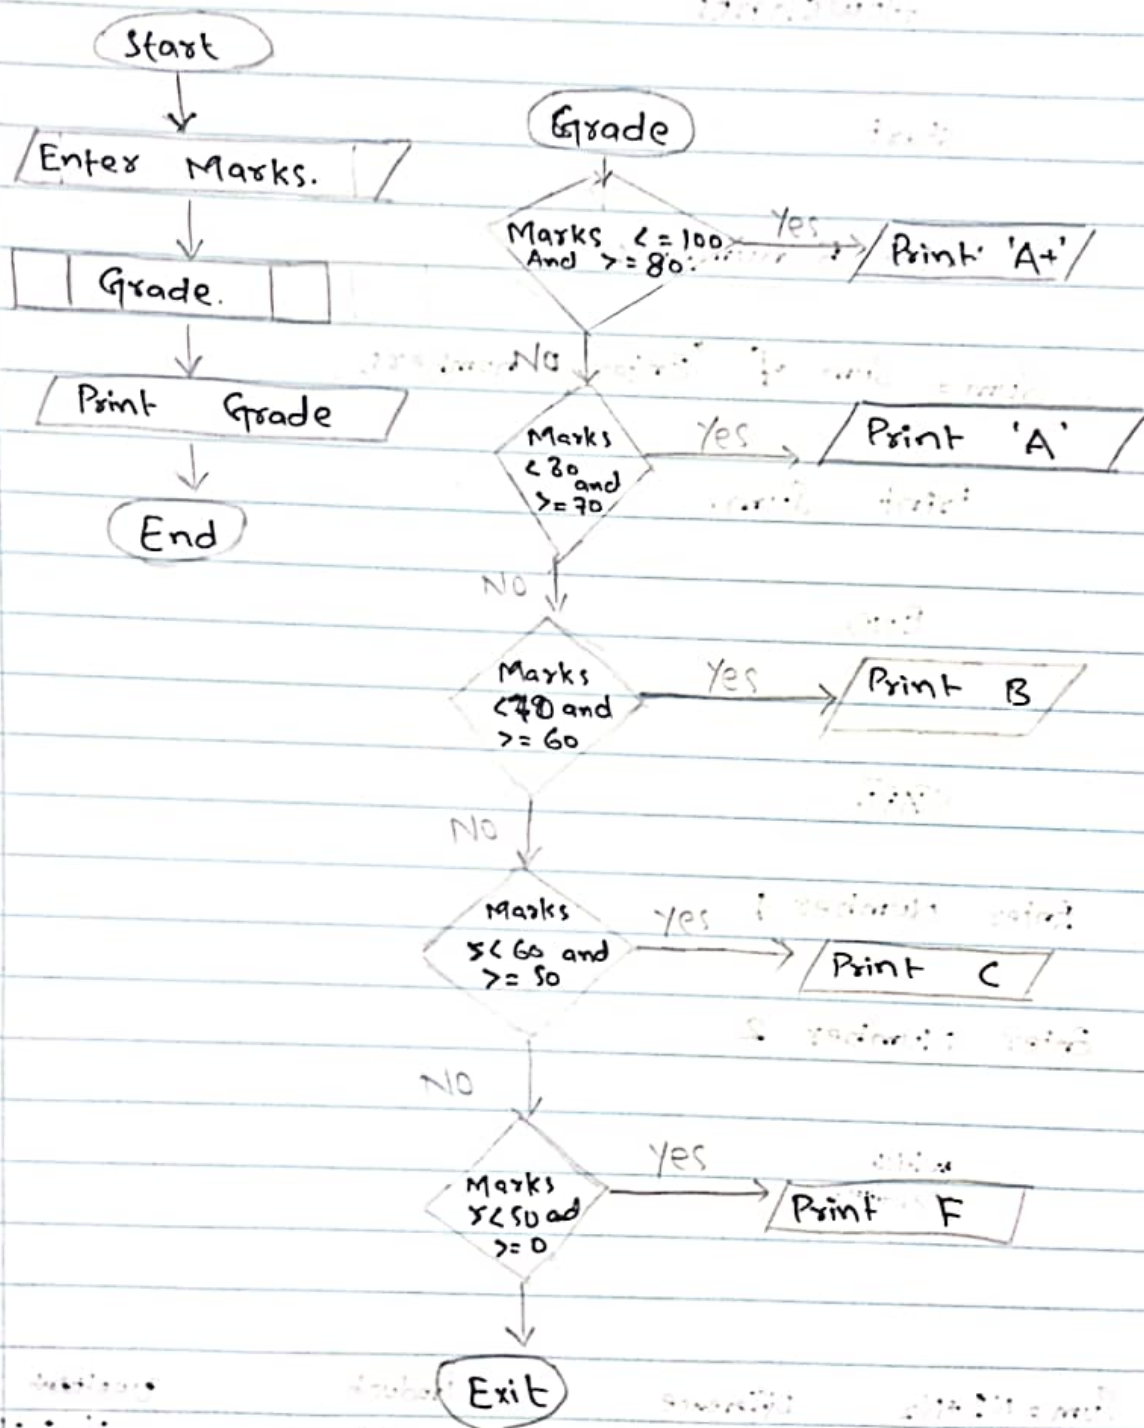 Start
Enter Marks.
Grade.
Print Grade
End
Grade
Marks <= 100
And >= 80
Yes
Print 'A+'
No
Marks
< 80
and
>= 70
Yes
Print 'A'
No
Marks
<70 and
>= 60
Yes
Print B
No
Marks
< 60 and
>= 50
Yes
Print C
No
Marks
< 50 ad
>= 0
Yes
Print F
Exit